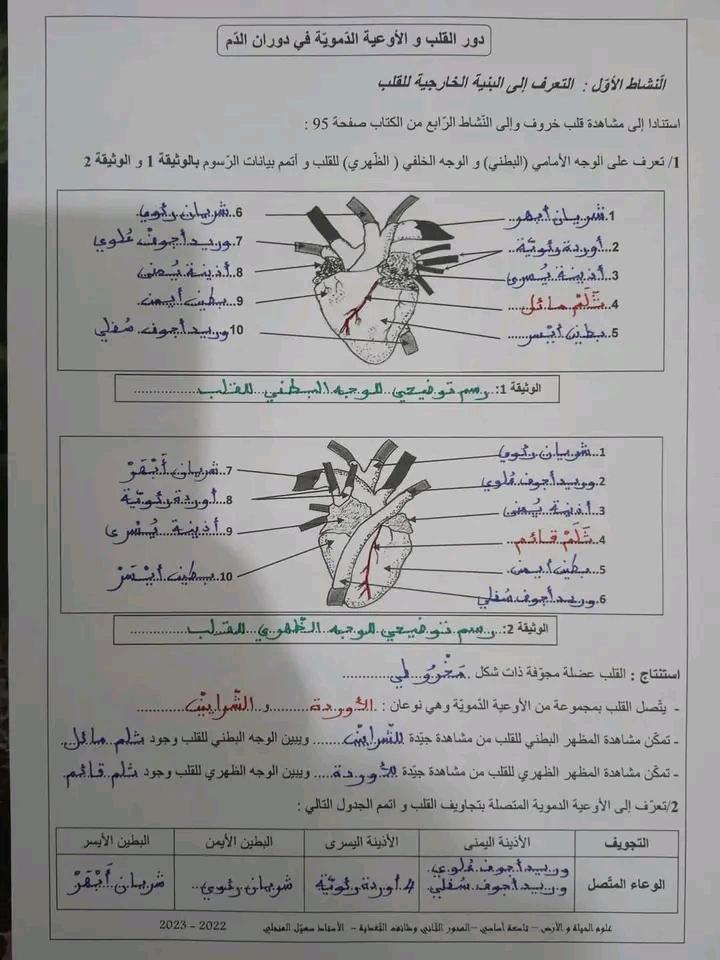 دور القلب و الأوعية الدّمويّة في دوران الدّم
النّشاط الأوّل : التعرف إلى البنية الخارجية للقلب
استنادا إلى مشاهدة قلب خروف وإلى النّشاط الرّابع من الكتاب صفحة 95 :
1/ تعرف على الوجه الأمامي (البطني) و الوجه الخلفي ( الظّهري) للقلب و أتمم بيانات الرّسوم بالوثيقة 1 و الوثيقة 2
1. شريان أبهر
2. أوردة رئويّة
3. أذينة يُسرى
4. ثَلَمْ مائل
5. بطين أيْسر
6. شريان رئوي
7. وريد أجوفْ عُلوي
8. أذينة يُمنى
9. بطين أيمن
10 وريد أجوف سُفلي
الوثيقة 1: رسم توضيحي للوجه البطني للقلب
1. شريان رئوي
2. وريد أجوف عُلوي
3. أذينة يُمنى
4. ثَلَمْ قائم
5. بطين أيمن
6. وريد أجوف سُفلي
7. شريان أَبْهَرْ
8. أوردة رئويّة
9. أذينة يُسْرى
10. بطين أيْسَرْ
الوثيقة 2: رسم توضيحي للوجه الظّهري للقلب
استنتاج : القلب عضلة مجوّفة ذات شكل مَخْرُوطي
- يتّصل القلب بمجموعة من الأوعية الدّمويّة وهي نوعان : الأوردة و الشّرايين
- تمكّن مشاهدة المظهر البطني للقلب من مشاهدة جيّدة للشرايين ويبين الوجه البطني للقلب وجود ثلم مائل
- تمكّن مشاهدة المظهر الظهري للقلب من مشاهدة جيّدة للأوردة ويبين الوجه الظهري للقلب وجود ثلم قائم
2/تعرّف إلى الأوعية الدموية المتصلة بتجاويف القلب و اتمم الجدول التالي :
التجويف الأذينة اليمنى الأذينة اليسرى البطين الأيمن البطين الأيسر
الوعاء المتّصل وريد أجوف عُلوي وريد أجوف سُفلي 4 أوردة رئويّة شريان رئوي شريان أَبْهَرْ
علوم الحياة و الأرض – تاسعة أساسي – المحور الثّاني وظائف التّغذية – الأستاذ سهيّل 2022 - 2023